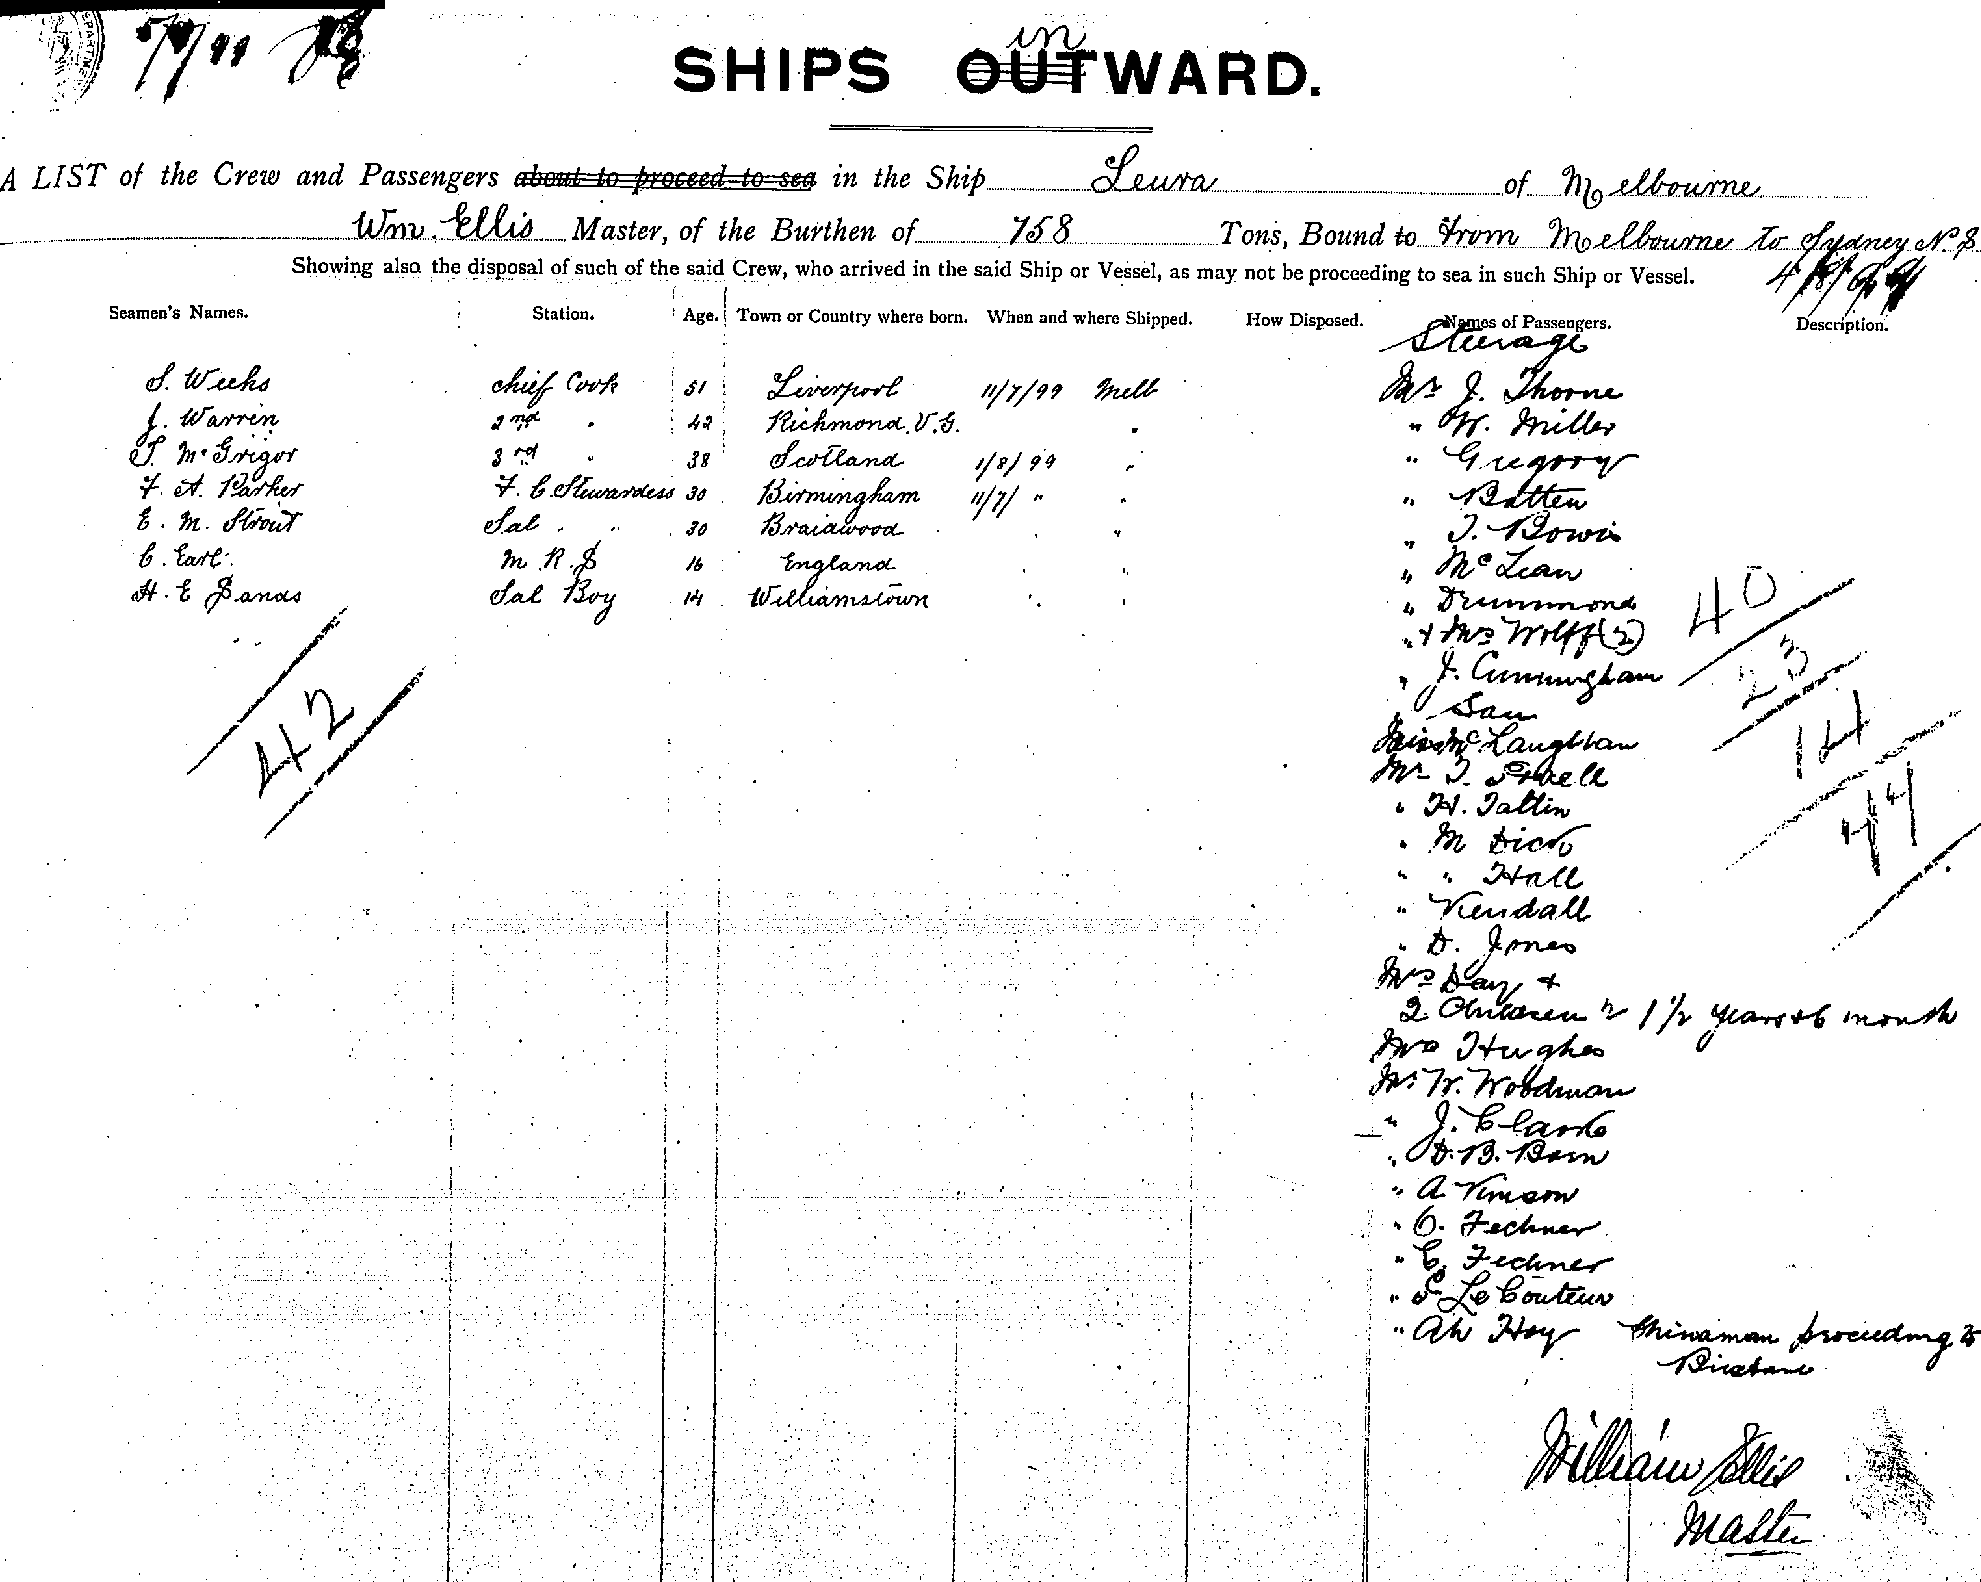 in
SHIPS OUTWARD.
A LIST of the Crew and Passengers about to proceed to sea in the Ship Leura of Melbourne
Wm. Ellis Master, of the Burthen of 758 Tons, Bound to from Melbourne to Sydney N.S.
Showing also the disposal of such of the said Crew, who arrived in the said Ship or Vessel, as may not be proceeding to sea in such Ship or Vessel. 4/8/99
Seamen's Names. Station. Age. Town or Country where born. When and where Shipped. How Disposed. Names of Passengers. Description.
Steerage
S. Weeks chief Cook 51 Liverpool 11/7/99 Melb Mr J. Thorne
J. Warren 2nd " 42 Richmond. V.G. " " W. Miller
T. McGrigor 3rd " 38 Scotland 1/8/99 " " Gregory
F. A. Parker F. C. Stewardess 30 Birmingham 11/7/ " " " Batten
E. M. Strout Sal " " 30 Braidwood " " " T. Bowis
C. Earl M. R. S 16 England " " " McLean
H. E Sands Sal Boy 14 Williamstown " " " Drummond
" + Mrs Wolff (2)
40
" J. Cunningham
23
" Sau
42
Miss McLaughlan
14
Mr T.
44
" H. Tattin
" M Dick
" " Hall
" Kendall
" D. Jones
Mrs Day +
2 Children 1 1/2 years + 6 month
Mrs Hughes
Mr W. Woodman
" J. Clarke
" D. B. Born
" A
" O. Fechner
" C. Fechner
" S Le Couteur
" Ah Hoy Chinaman proceeding to
Brisbane
William Ellis
Master